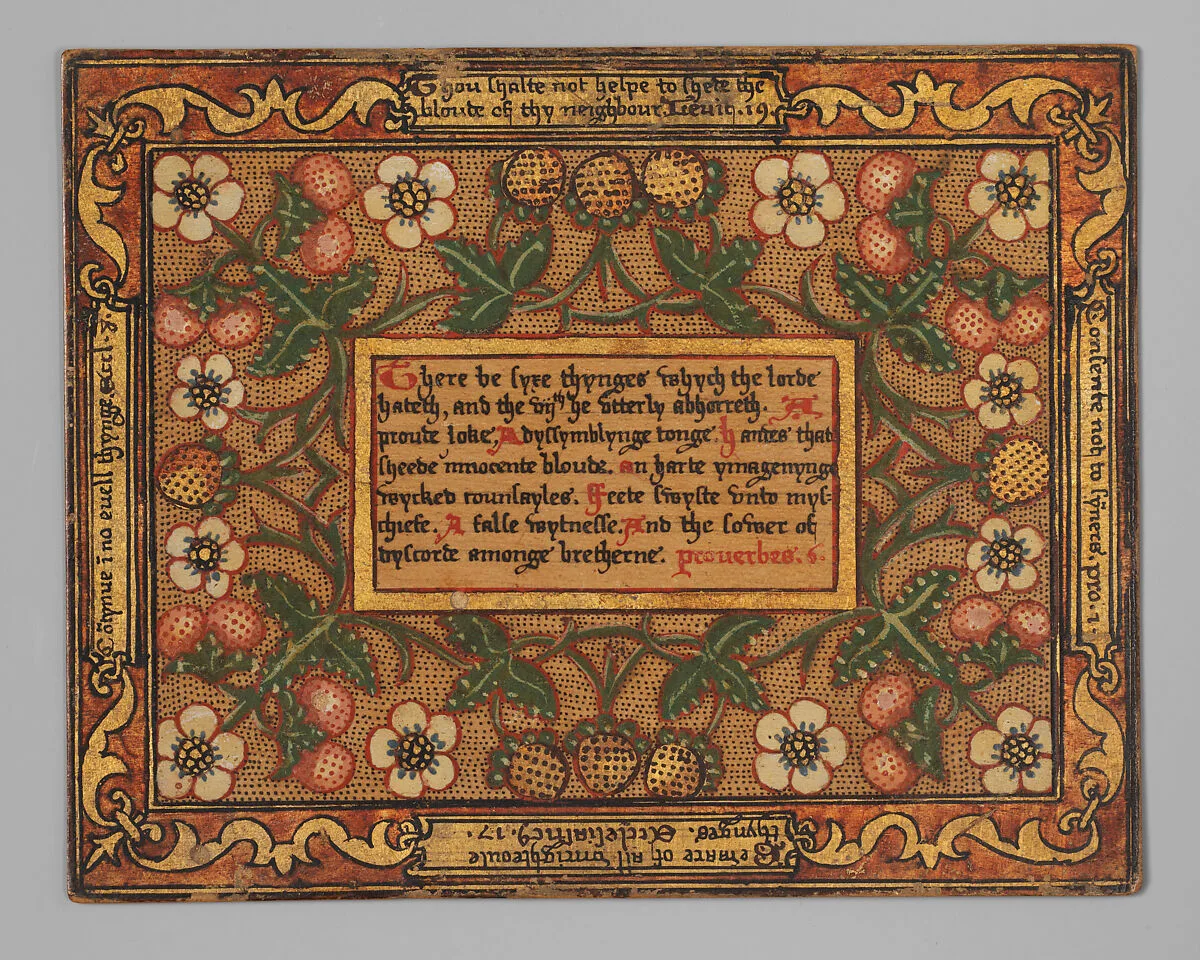 Thou shalte not helpe to shete the
bloude of thy neighbour. Leuiti. 19
There be syxe thynges whych the lorde
hateth, and the vijth he vtterly abhorreth. A
proute loke, A dyssymblynge tonge. handes that
sheede innocente bloude. an harte ymagenynge
wycked counsayles. Feete swyfte vnto mys-
chiefe. A false wytnesse. And the sower of
dyscorde amonge bretherne. prouerbes. 6.
Consente not to syners. pro. 1.
Beware of all vnrighteouse
thynges. Ecclesiasticj. 17.
Cōtynue i no euell thynge. eccl. 8